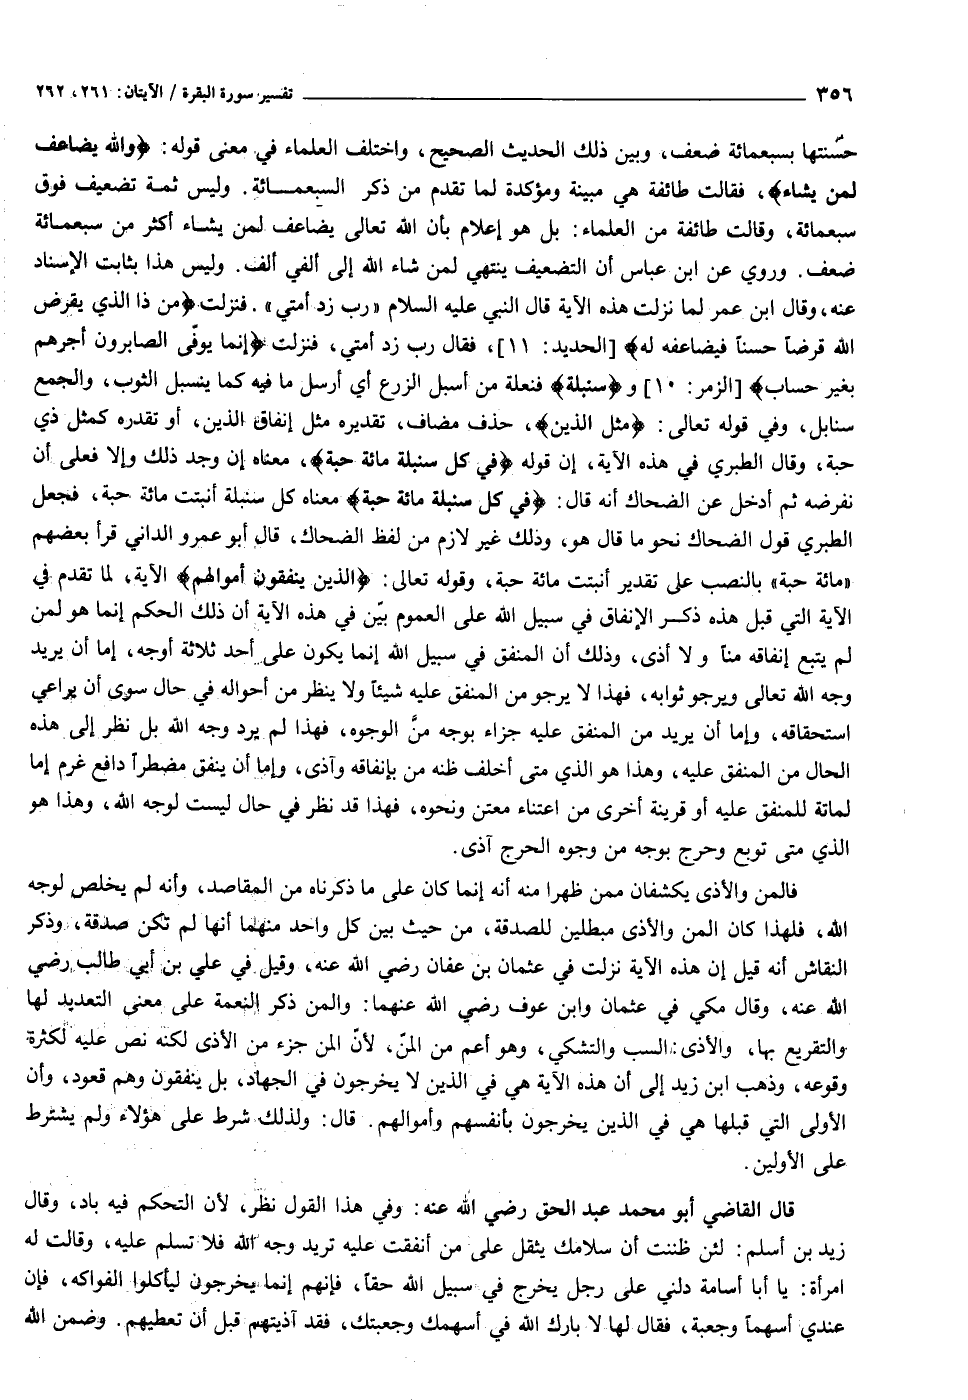 ٣٥٦ تفسير سورة البقرة / الآيتان: ٢٦١، ٢٦٢
حسّنتها بسبعمائة ضعف، وبين ذلك الحديث الصحيح، واختلف العلماء في معنى قوله: ﴿والله يضاعف
لمن يشاء﴾، فقالت طائفة هي مبينة ومؤكدة لما تقدم من ذكر السبعمائة. وليس ثمة تضعيف فوق
سبعمائة، وقالت طائفة من العلماء: بل هو إعلام بأن الله تعالى يضاعف لمن يشاء أكثر من سبعمائة
ضعف. وروي عن ابن عباس أن التضعيف ينتهي لمن شاء الله إلى ألفي ألف. وليس هذا بثابت الإسناد
عنه، وقال ابن عمر لما نزلت هذه الآية قال النبي عليه السلام «رب زد أمتي». فنزلت ﴿من ذا الذي يقرض
الله قرضاً حسناً فيضاعفه له﴾ [الحديد: ١١]، فقال رب زد أمتي، فنزلت ﴿إنما يوفّى الصابرون أجرهم
بغير حساب﴾ [الزمر: ١٠] و ﴿سنبلة﴾ فنعلة من أسبل الزرع أي أرسل ما فيه كما ينسبل الثوب، والجمع
سنابل، وفي قوله تعالى: ﴿مثل الذين﴾، حذف مضاف، تقديره مثل إنفاق الذين، أو تقدره كمثل ذي
حبة، وقال الطبري في هذه الآية، إن قوله ﴿في كل سنبلة مائة حبة﴾، معناه إن وجد ذلك وإلا فعلى أن
نفرضه ثم أدخل عن الضحاك أنه قال: ﴿في كل سنبلة مائة حبة﴾ معناه كل سنبلة أنبتت مائة حبة، فجعل
الطبري قول الضحاك نحو ما قال هو، وذلك غير لازم من لفظ الضحاك، قال أبو عمرو الداني قرأ بعضهم
«مائة حبة» بالنصب على تقدير أنبتت مائة حبة، وقوله تعالى: ﴿الذين ينفقون أموالهم﴾ الآية، لما تقدم في
الآية التي قبل هذه ذكر الإنفاق في سبيل الله على العموم بيّن في هذه الآية أن ذلك الحكم إنما هو لمن
لم يتبع إنفاقه مناً ولا أذى، وذلك أن المنفق في سبيل الله إنما يكون على أحد ثلاثة أوجه، إما أن يريد
وجه الله تعالى ويرجو ثوابه، فهذا لا يرجو من المنفق عليه شيئاً ولا ينظر من أحواله في حال سوى أن يراعي
استحقاقه، وإما أن يريد من المنفق عليه جزاء بوجه منَّ الوجوه، فهذا لم يرد وجه الله بل نظر إلى هذه
الحال من المنفق عليه، وهذا هو الذي متى أخلف ظنه من بإنفاقه وآذى، وإما أن ينفق مضطراً دافع غرم إما
لماتة للمنفق عليه أو قرينة أخرى من اعتناء معتن ونحوه، فهذا قد نظر في حال ليست لوجه الله، وهذا هو
الذي متى توبع وحرج بوجه من وجوه الحرج آذى.
فالمن والأذى يكشفان ممن ظهرا منه أنه إنما كان على ما ذكرناه من المقاصد، وأنه لم يخلص لوجه
الله، فلهذا كان المن والأذى مبطلين للصدقة، من حيث بين كل واحد منهما أنها لم تكن صدقة، وذكر
النقاش أنه قيل إن هذه الآية نزلت في عثمان بن عفان رضي الله عنه، وقيل في علي بن أبي طالب رضي
الله عنه، وقال مكي في عثمان وابن عوف رضي الله عنهما: والمن ذكر النعمة على معنى التعديد لها
والتقريع بها، والأذى: السب والتشكي، وهو أعم من المنّ، لأنّ المن جزء من الأذى لكنه نص عليه لكثرة
وقوعه، وذهب ابن زيد إلى أن هذه الآية هي في الذين لا يخرجون في الجهاد، بل ينفقون وهم قعود، وأن
الأولى التي قبلها هي في الذين يخرجون بأنفسهم وأموالهم. قال: ولذلك شرط على هؤلاء ولم يشترط
على الأولين.
قال القاضي أبو محمد عبد الحق رضي الله عنه: وفي هذا القول نظر، لأن التحكم فيه باد، وقال
زيد بن أسلم: لئن ظننت أن سلامك يثقل على من أنفقت عليه تريد وجه الله فلا تسلم عليه، وقالت له
امرأة: يا أبا أسامة دلني على رجل يخرج في سبيل الله حقاً، فإنهم إنما يخرجون ليأكلوا الفواكه، فإن
عندي أسهماً وجعبة، فقال لها لا بارك الله في أسهمك وجعبتك، فقد آذيتهم قبل أن تعطيهم. وضمن الله